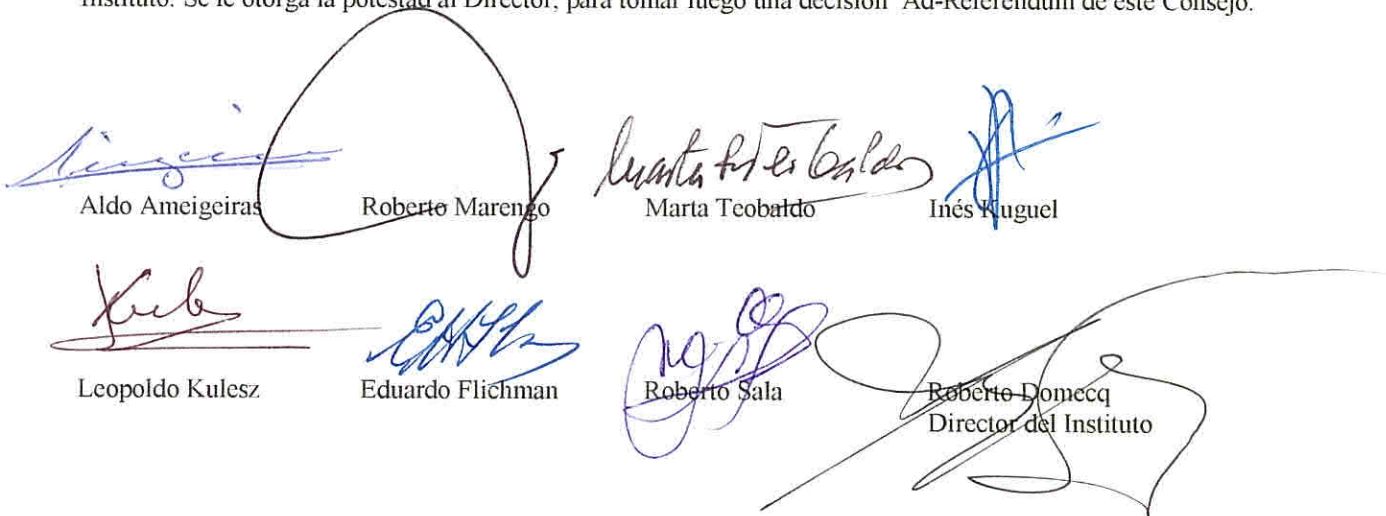 Instituto. Se le otorga la potestad al Director, para tomar luego una decisión Ad-Referendum de este Consejo.
Aldo Ameigeiras Roberto Marengo Marta Teobaldo Inés Kuguel
Leopoldo Kulesz Eduardo Flichman Roberto Sala Roberto Domecq
Director del Instituto